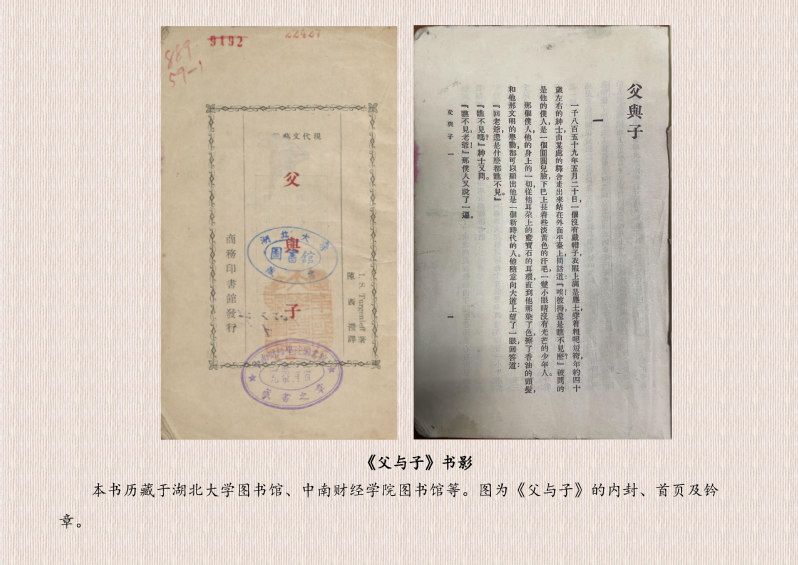 9192
22427
889
59-1
現代文
父與子
I. S. Turgenief 著
陳西瀅譯
商務印書館發行
湖北大學
圖書館
藏書之章
父與子
一
一千八百五十九年五月二十日，一個沒有戴帽子，衣服上滿是塵土，穿着粗呢短褲，年約四十
歲左右的紳士由某處的驛舍走出來站在外面平臺上問話道：『唉，彼得，還是瞧不見麼？』被問的
是他的僕人，是一個圓圓兒臉，下巴上長着些淡黃色的汗毛，一雙小眼睛沒有光芒的少年人。
那個僕人，他的身上的一切，從他耳朵上的藍寶石的耳環，直到他那染了色，擦了香油的頭髮，
和他那文明的舉動，都可以顯出他是一個新時代的人，他隨意向大道上望了一眼，回答道：
『回老爺，還是什麼都瞧不見。』
『瞧不見嗎？』紳士又問。
『瞧不見，老爺，』那僕人又說了一遍。
父與子 一
一
《父与子》书影
本书历藏于湖北大学图书馆、中南财经学院图书馆等。图为《父与子》的内封、首页及钤
章。